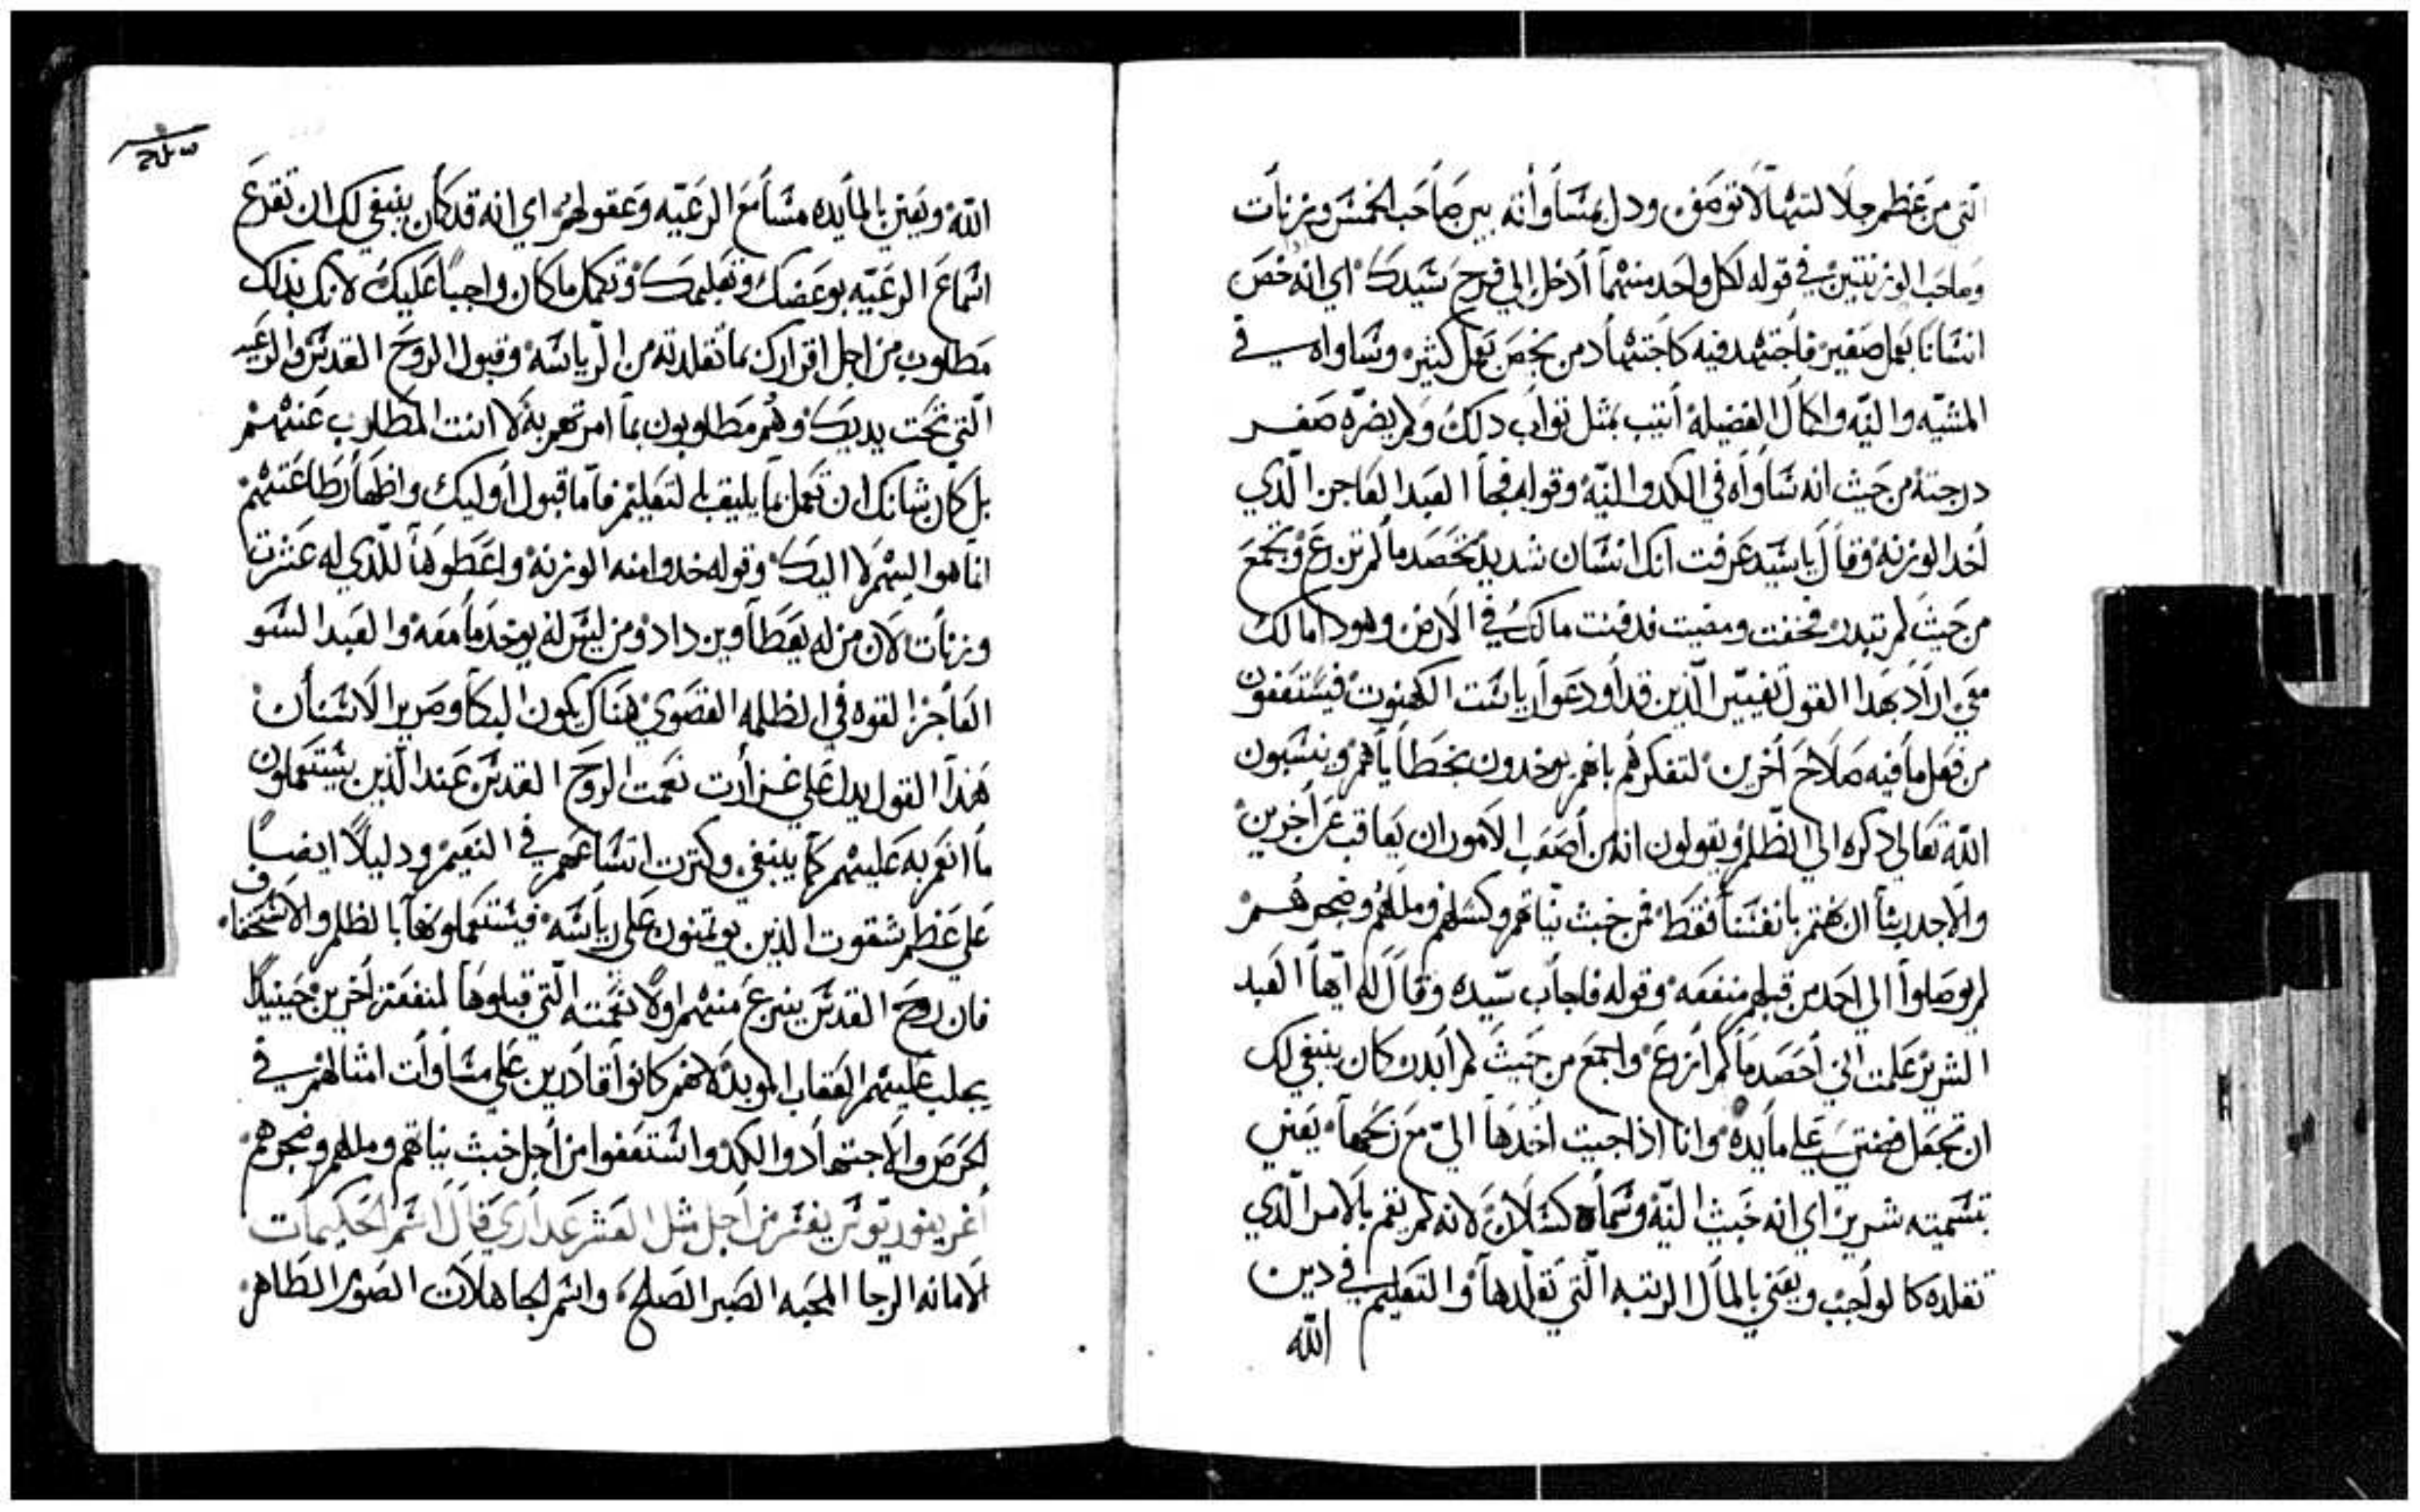 التي من عظم جلالتها لا توصف ودل بمساواته بين صاحب الخمس وزنات
وصاحب الوزنتين في قوله لكل واحد منهما أدخل الي فرح سيدك اي انه خص
انسانا بعمل صغير فاجتهد فيه كاجتهاد من يخص بعمل كثير وساواه في
المشيّه والنيّه واكمال الفضيلة أتيب بمثل تواب دلك ولم يضرّه صغر
درجته من حيث انه ساواه في الكد والنيّه وقوله فجا العبد العاجز الّذي
أخد الوزنه وقال يا سيد عرفت انك انسان شديد تحصد ما لم تزرع وتجمع
من حيث لم تبدر فخفت ومضيت فدفنت مالك في الارض وهودا مالك
معي اراد بهدا القول تغيير الّذين قد أودعوا رياست الكهنوت فيستعفون
من فعل ما فيه صلاح أخرين لتفكرهم بانهم يوخدون بخطاياهم وينسبون
اللّه تعالي دكره الي الظّلم ويقولون انه من أصعب الامور ان يعاقب عن أخرين
والاجدر بنا ان نهتم بانفسنا فقط فمن خبث نيّاتهم وكسلهم ومللهم وضجرهم
لم يوصلوا الي احد من قبلهم منفعه وقوله فاجاب سيّده وقال له ايّها العبد
الشرير علمت انّي أحصد ما لم أزرع واجمع من حيث لم أبدر كان ينبغي لك
ان تجعل فضتي علي مايده وانا اذا جيت اخدها اليّ مع ربحها يعني
بتسميته شرير اي انه خبيث النيّه وسماه كسلان لانه لم يقم بالامر الّذي
تقلده كالواجب ويعني بالمال الرتبه الّتي تقلّدها والتعليم في دين
اللّه
اللّه ويعني بالمايده مسامع الرعيّه وعقولهم اي انه قد كان ينبغي لك ان تقرع
اسماع الرعيّه بوعضك وتعليمك وتكمل ما كان واجباً عليك لانك بذلك
مطلوب من اجل اقرارك بما تقلدته من الرياسه وقبول الروح القدس والرعيه
الّتي تحت يديك وهم مطلوبون بما امرتهم به لا انت المطالب عنهم
بل كان شانك ان تعمل بما يليق بالتعليم فامّا قبول أوليك واظهار طاعتهم
انما هو اليهم لا اليك وقوله خدوا منه الوزنه واعطوها للّذي له عشرت
وزنات لان من له يعطا ويزداد ومن ليس له يوخد ما معه والعبد السو
الفاجر القوه في الظلمه القصوي هناك يكون البكا وصرير الاسنان
هذا القول يدل علي غزارت نعمت الروح القدس عند الّذين يستعملون
ما انعم به عليهم كما ينبغي وكترت اتساعهم في النعيم ودليلاً ايضاً
علي عظم شقوت الذين يوتمنون علي رياسه فيستعملونها بالظلم والاستخفاف
فان روح القدس ينزع منهم اولاً نعمته الّتي قبلوها لمنفعة أخرين حينيدٍ
يجلب عليهم العقاب الموبد لانهم كانوا قادرين علي مساوات امثالهم في
الحرص والاجتهاد والكد واستعفوا من أجل خبث نياتهم ومللهم وضجرهم
أغريغوريوس يفسّر من اجل مثل العشر عداري قال اسم الحكيمات
الامانه الرجا المحبه الصبر الصلح واسم الجاهلات الصور الطاهر